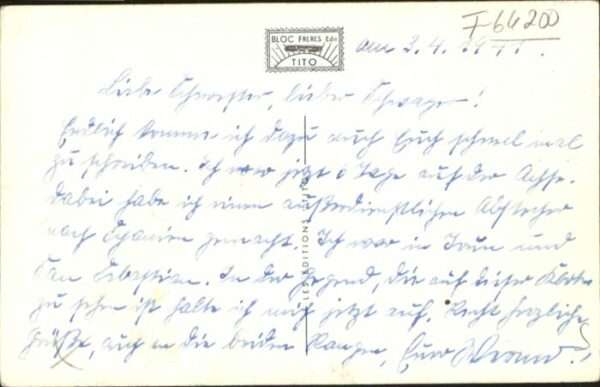 F-64200
BLOC FRERES Edit
TITO
am 2.4.1941.
Liebe Schwester, lieber Schwager!
Endlich komme ich dazu auch Euch schnell mal
zu schreiben. Ich war jetzt 6 Tage auf der Achse.
Dabei habe ich einen außerdienstlichen Abstecher
nach Spanien gemacht. Ich war in Irun und
San Sebastian. In der Gegend, die auf dieser Karte
zu sehen ist halte ich mich jetzt auf. Recht herzliche
Grüße, auch an die beiden Rangen, Euer
LES EDITIONS TITO